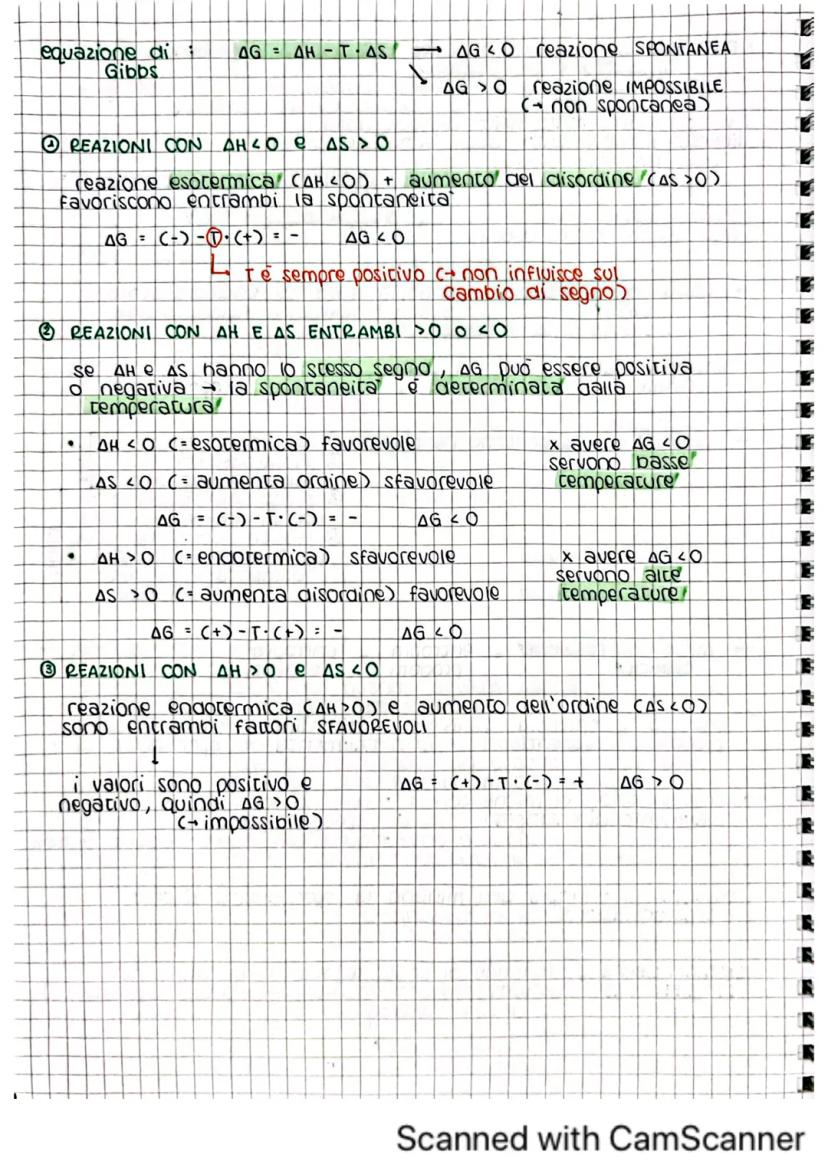 equazione di : ΔG = ΔH - T · ΔS → ΔG < 0 reazione SPONTANEA
Gibbs
↘ ΔG > 0 reazione IMPOSSIBILE
(→ non spontanea)
① REAZIONI CON ΔH < 0 e ΔS > 0
reazione esotermica (ΔH < 0) + aumento del disordine (ΔS > 0)
favoriscono entrambi la spontaneità
ΔG = (-) - T · (+) = - ΔG < 0
T è sempre positivo (→ non influisce sul
cambio di segno)
② REAZIONI CON ΔH E ΔS ENTRAMBI > 0 O < 0
se ΔH e ΔS hanno lo stesso segno, ΔG può essere positiva
o negativa → la spontaneità è determinata dalla
temperatura
• ΔH < 0 (= esotermica) favorevole
ΔS < 0 (= aumenta ordine) sfavorevole
x avere ΔG < 0
servono basse
temperature
ΔG = (-) - T · (-) = - ΔG < 0
• ΔH > 0 (= endotermica) sfavorevole
ΔS > 0 (= aumenta disordine) favorevole
x avere ΔG < 0
servono alte
temperature
ΔG = (+) - T · (+) = - ΔG < 0
③ REAZIONI CON ΔH > 0 e ΔS < 0
reazione endotermica (ΔH > 0) e aumento dell'ordine (ΔS < 0)
sono entrambi fattori SFAVOREVOLI
↓
i valori sono positivo e
negativo, quindi ΔG > 0
(→ impossibile)
ΔG = (+) - T · (-) = + ΔG > 0
Scanned with CamScanner